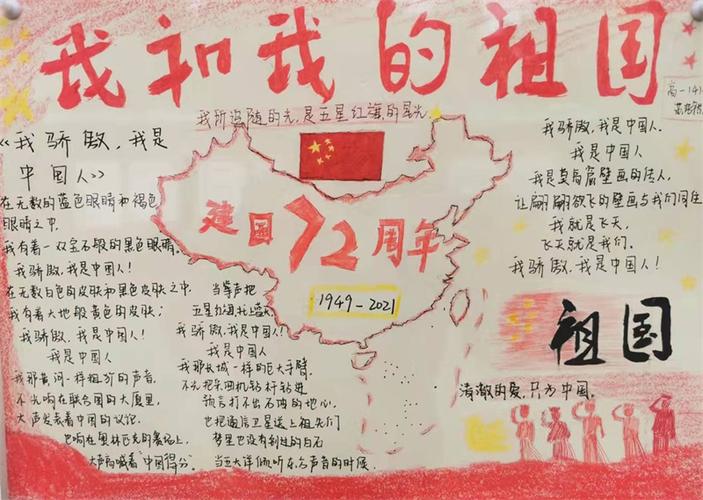 我和我的祖国
我所追随的光,是五星红海的星光
高一141
《我骄傲,我是
中国人》
在无数的蓝色眼睛和褐色
眼睛之中,
我有着一双宝石般的黑色眼睛。
我骄傲,我是中国人!
在无数白色的皮肤和黑色皮肤之中,
我有着大地般黄色的皮肤;
我骄傲,我是中国人!
我是中国人
我那黄河一样粗犷的声音,
不光响在联合国的大厦里,
大声发表着中国的议论,
也响在奥林匹克的赛场上
大声高喊着"中国得分"
当掌声把
五星红海托上蓝天
我骄傲,我是中国人!
我是中国人
我那长城一样的巨大手臂,
不光把采油机钻杆钻进
预言打不出石油的地心,
也把通信卫星送上祖先们
梦里也没有到过的白云
当五大洋倾听东方声音的时候,
建国72周年
1949-2021
我骄傲,我是中国人。
我是中国人
我是莫高窟壁画的传人,
让翩翩欲飞的壁画与我们同住
我就是飞天,
飞天就是我们。
我骄傲,我是中国人!
祖国
清澈的爱,只为中国。